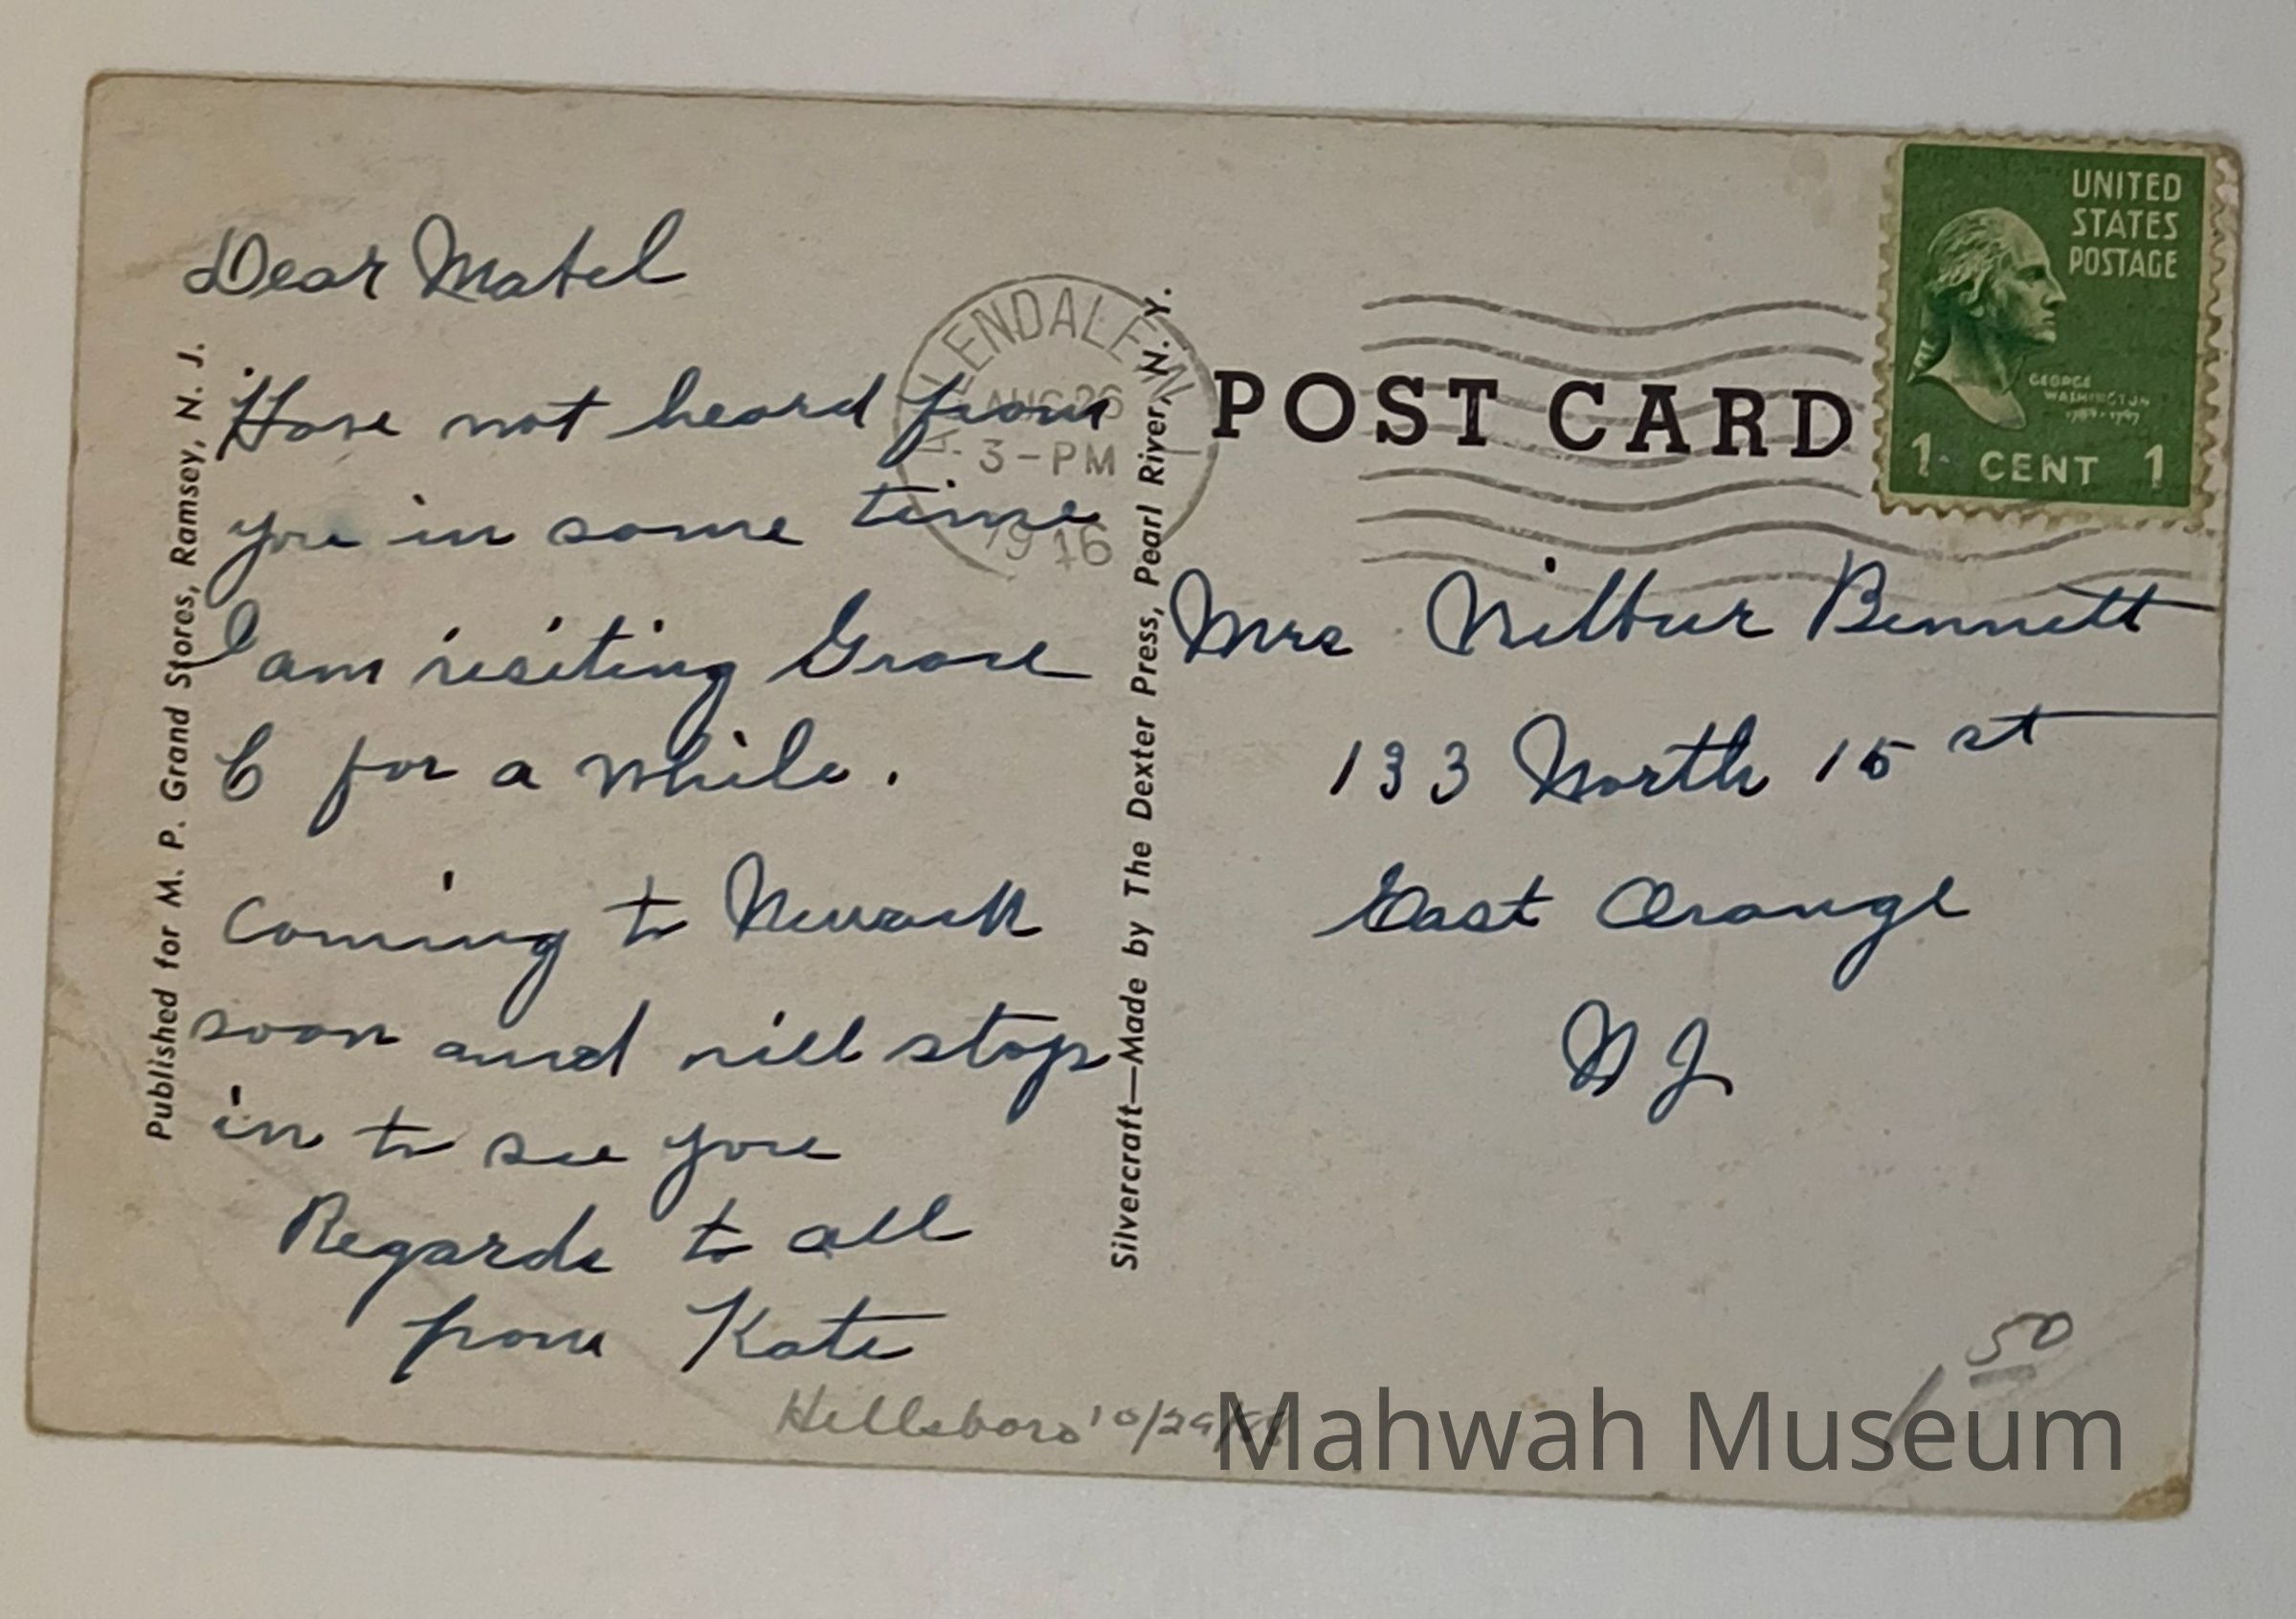 Dear Mabel
Have not heard from
you in some time
I am visiting Grace
C for a while.
Coming to Newark
soon and will stop
in to see you
Regards to all
from Kate
Hillsboro 10/29/
Published for M. P. Grand Stores, Ramsey, N. J.
Silvercraft—Made by The Dexter Press, Pearl River, N. Y.
ALLENDALE N
AUG 26
3-PM
1946
POST CARD
UNITED
STATES
POSTAGE
GEORGE
WASHINGTON
1789-1797
1 CENT 1
Mrs Wilbur Bennett
133 North 15 st
East Orange
N J
1 50
Mahwah Museum